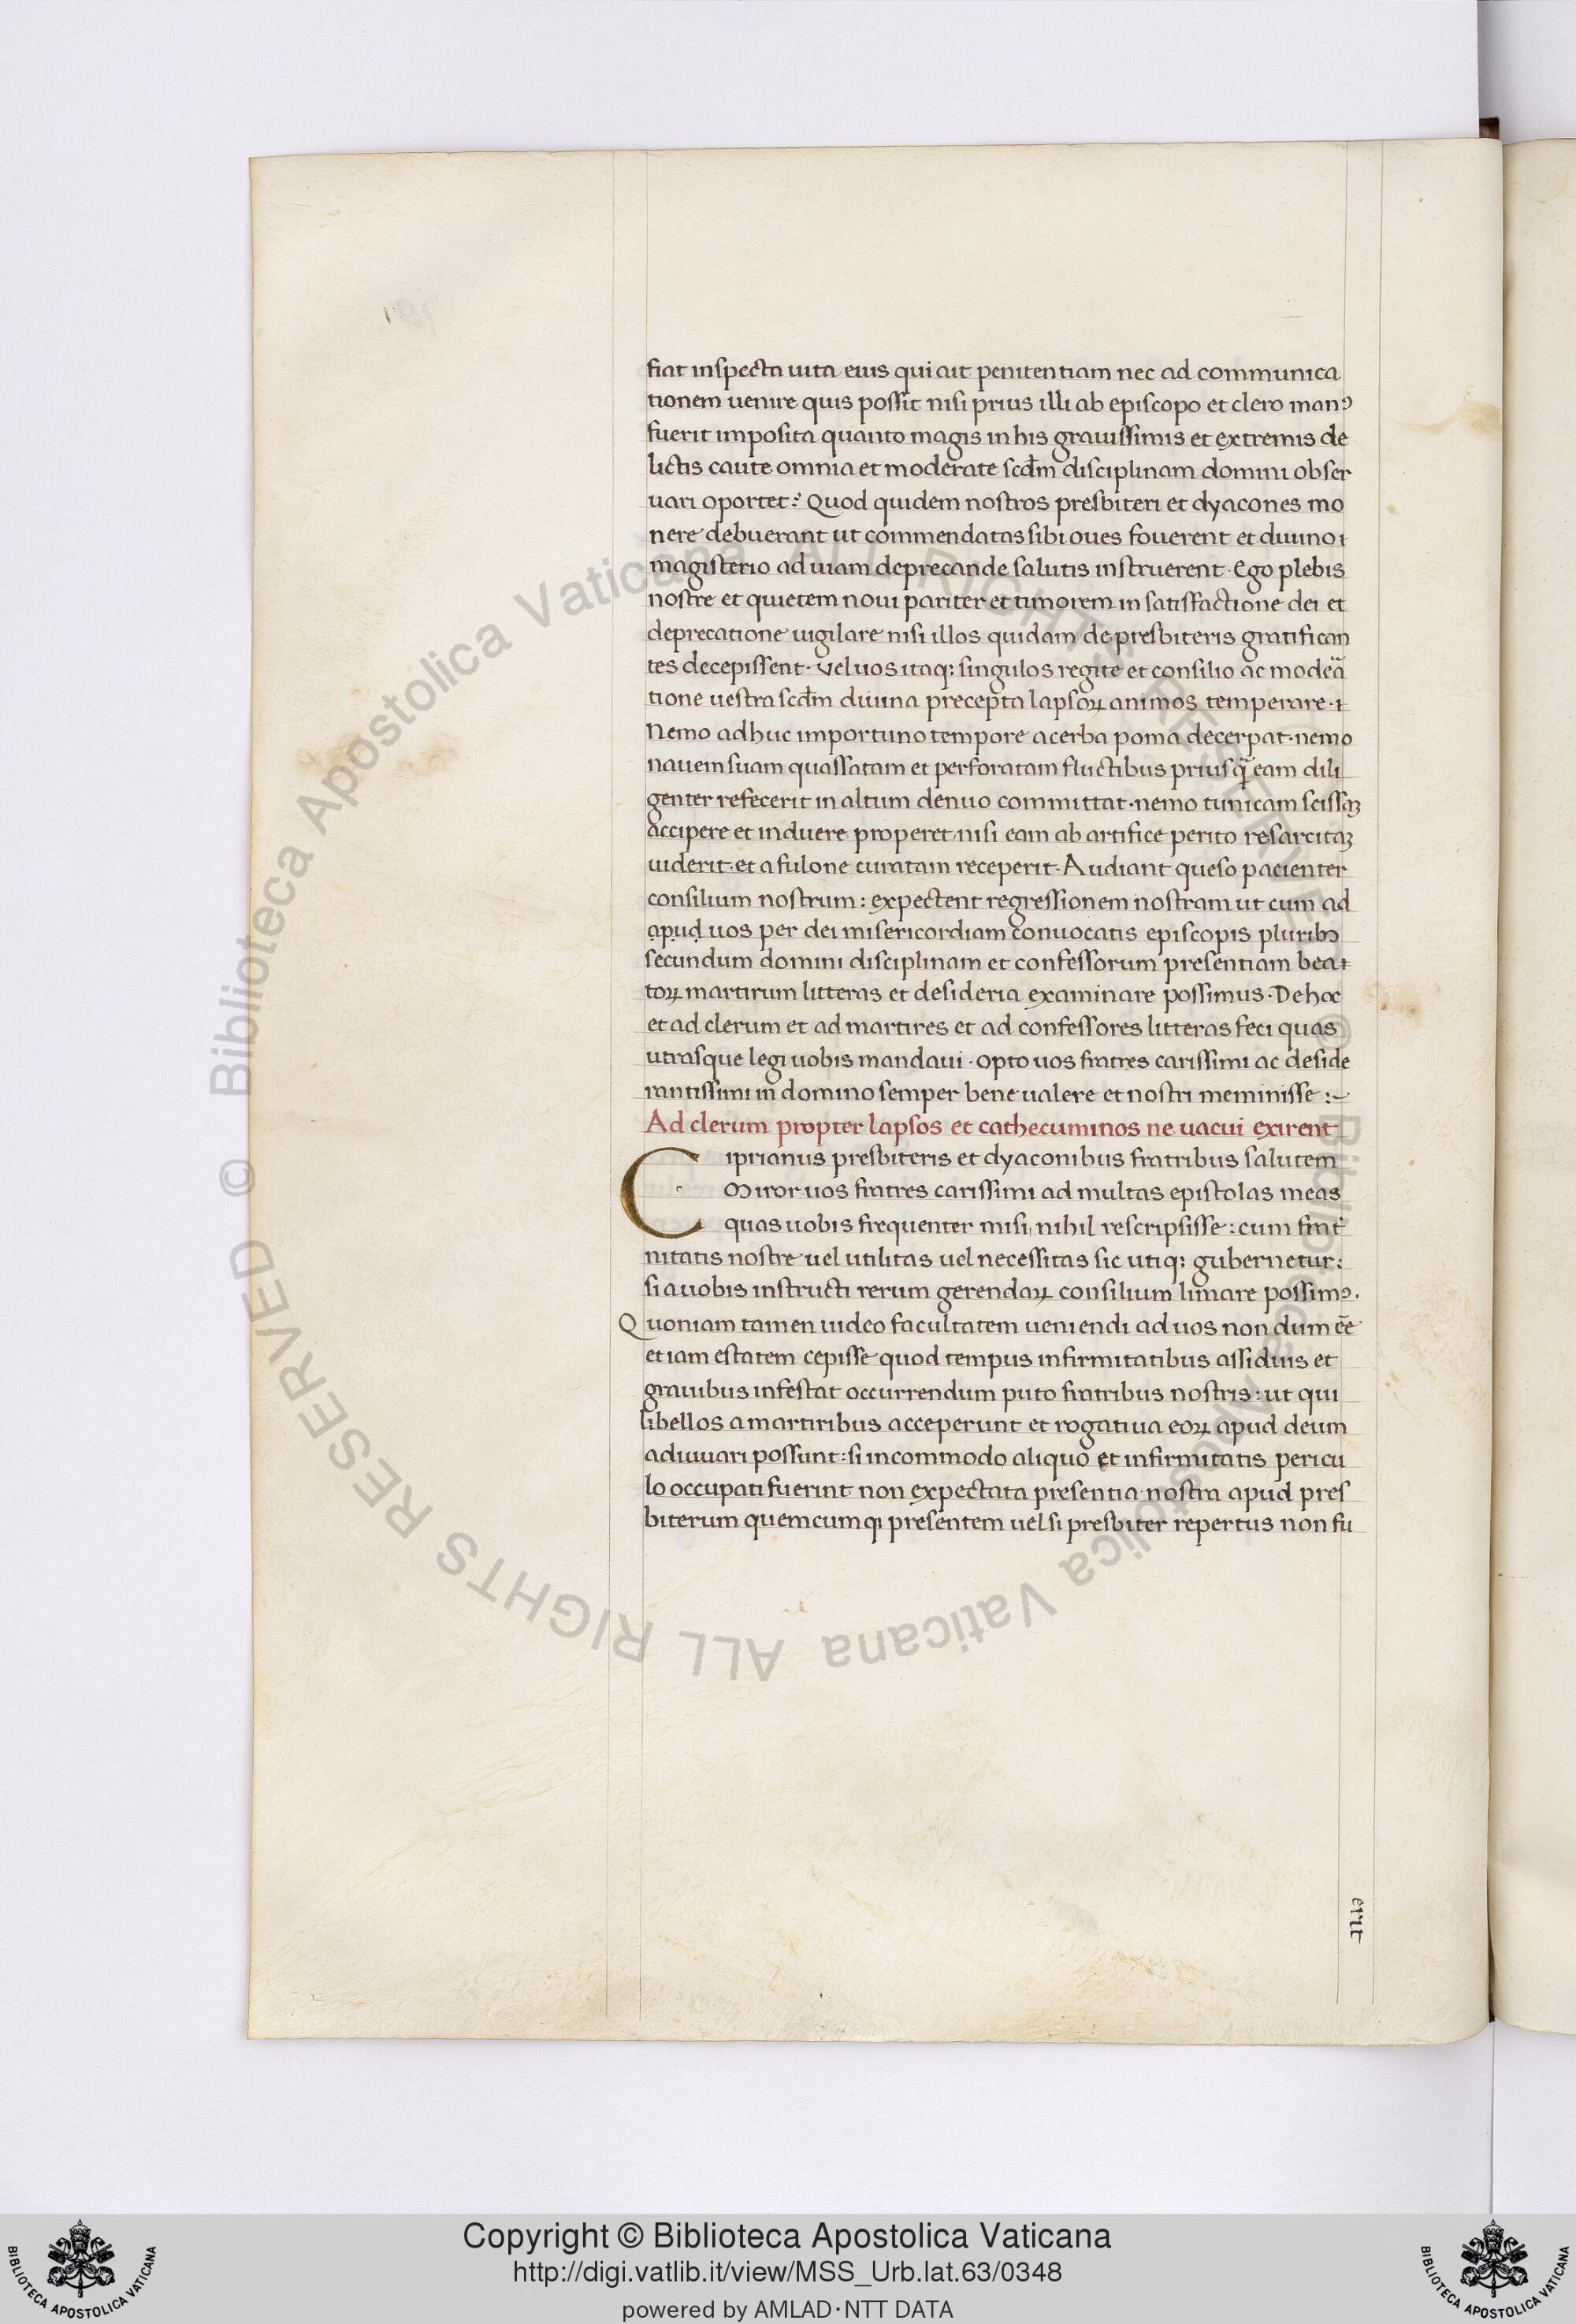 fiat inspecta uita eius qui ait penitentiam nec ad communica
tionem uenire quis possit nisi prius illi ab episcopo et clero manꝰ
fuerit imposita quanto magis in his grauissimis et extremis de
lictis caute omnia et moderate scdm̄ disciplinam domini obser
uari oportet? Quod quidem nostros presbiteri et dyacones mo
nere debuerant ut commendatas sibi oues fouerent et diuino
magisterio ad uiam deprecande salutis instruerent · Ego plebis
nostre et quietem noui pariter et timorem in satisfactione dei et
deprecatione uigilare nisi illos quidam de presbiteris gratifican
tes decepissent · Vel uos itaq: singulos regite et consilio ac modeā
tione uestra scdm̄ diuina precepta lapsoꝝ animos temperare ·
Nemo adhuc importuno tempore acerba poma decerpat · nemo
nauem suam quassatam et perforatam fluctibus priusq̄ eam dili
genter refecerit in altum denuo committat · nemo tunicam scissaʒ
accipere et induere properet, nisi eam ab artifice perito resarcitaʒ
uiderit · et a fulone curatam receperit · Audiant queso pacienter
consilium nostrum : expectent regressionem nostram ut cum ad
apud uos per dei misericordiam conuocatis episcopis pluribꝰ
secundum domini disciplinam et confessorum presentiam bea
toꝝ martirum litteras et desideria examinare possimus · De hoc
et ad clerum et ad martires et ad confessores litteras feci quas
utrasque legi uobis mandaui · opto uos fratres carissimi ac deside
rantissimi in domino semper bene ualere et nostri meminisse :~
Ad clerum propter lapsos et cathecuminos ne uacui exirent
Ciprianus presbiteris et dyaconibus fratribus salutem
Miror uos fratres carissimi ad multas epistolas meas
quas uobis frequenter misi, nihil rescripsisse : cum frat̾
nitatis nostre uel utilitas uel necessitas sic utiq: gubernetur :
si a uobis instructi rerum gerendaꝝ consilium limare possimꝰ.
Quoniam tamen uideo facultatem ueniendi ad uos non dum eē
et iam estatem cepisse quod tempus infirmitatibus assiduis et
grauibus infestat occurrendum puto fratribus nostris : ut qui
libellos a martiribus acceperunt et rogatiua eoꝝ apud deum
adiuuari possunt : si incommodo aliquo et infirmitatis pericu
lo occupati fuerint non expectata presentia nostra apud pres
biterum quemcumq; presentem uel si presbiter repertus non fu
erit
© Biblioteca Apostolica Vaticana ALL RIGHTS RESERVED
© Biblioteca Apostolica Vaticana ALL RIGHTS RESERVED
Copyright © Biblioteca Apostolica Vaticana
http://digi.vatlib.it/view/MSS_Urb.lat.63/0348
powered by AMLAD·NTT DATA
BIBLIOTECA APOSTOLICA VATICANA
BIBLIOTECA APOSTOLICA VATICANA